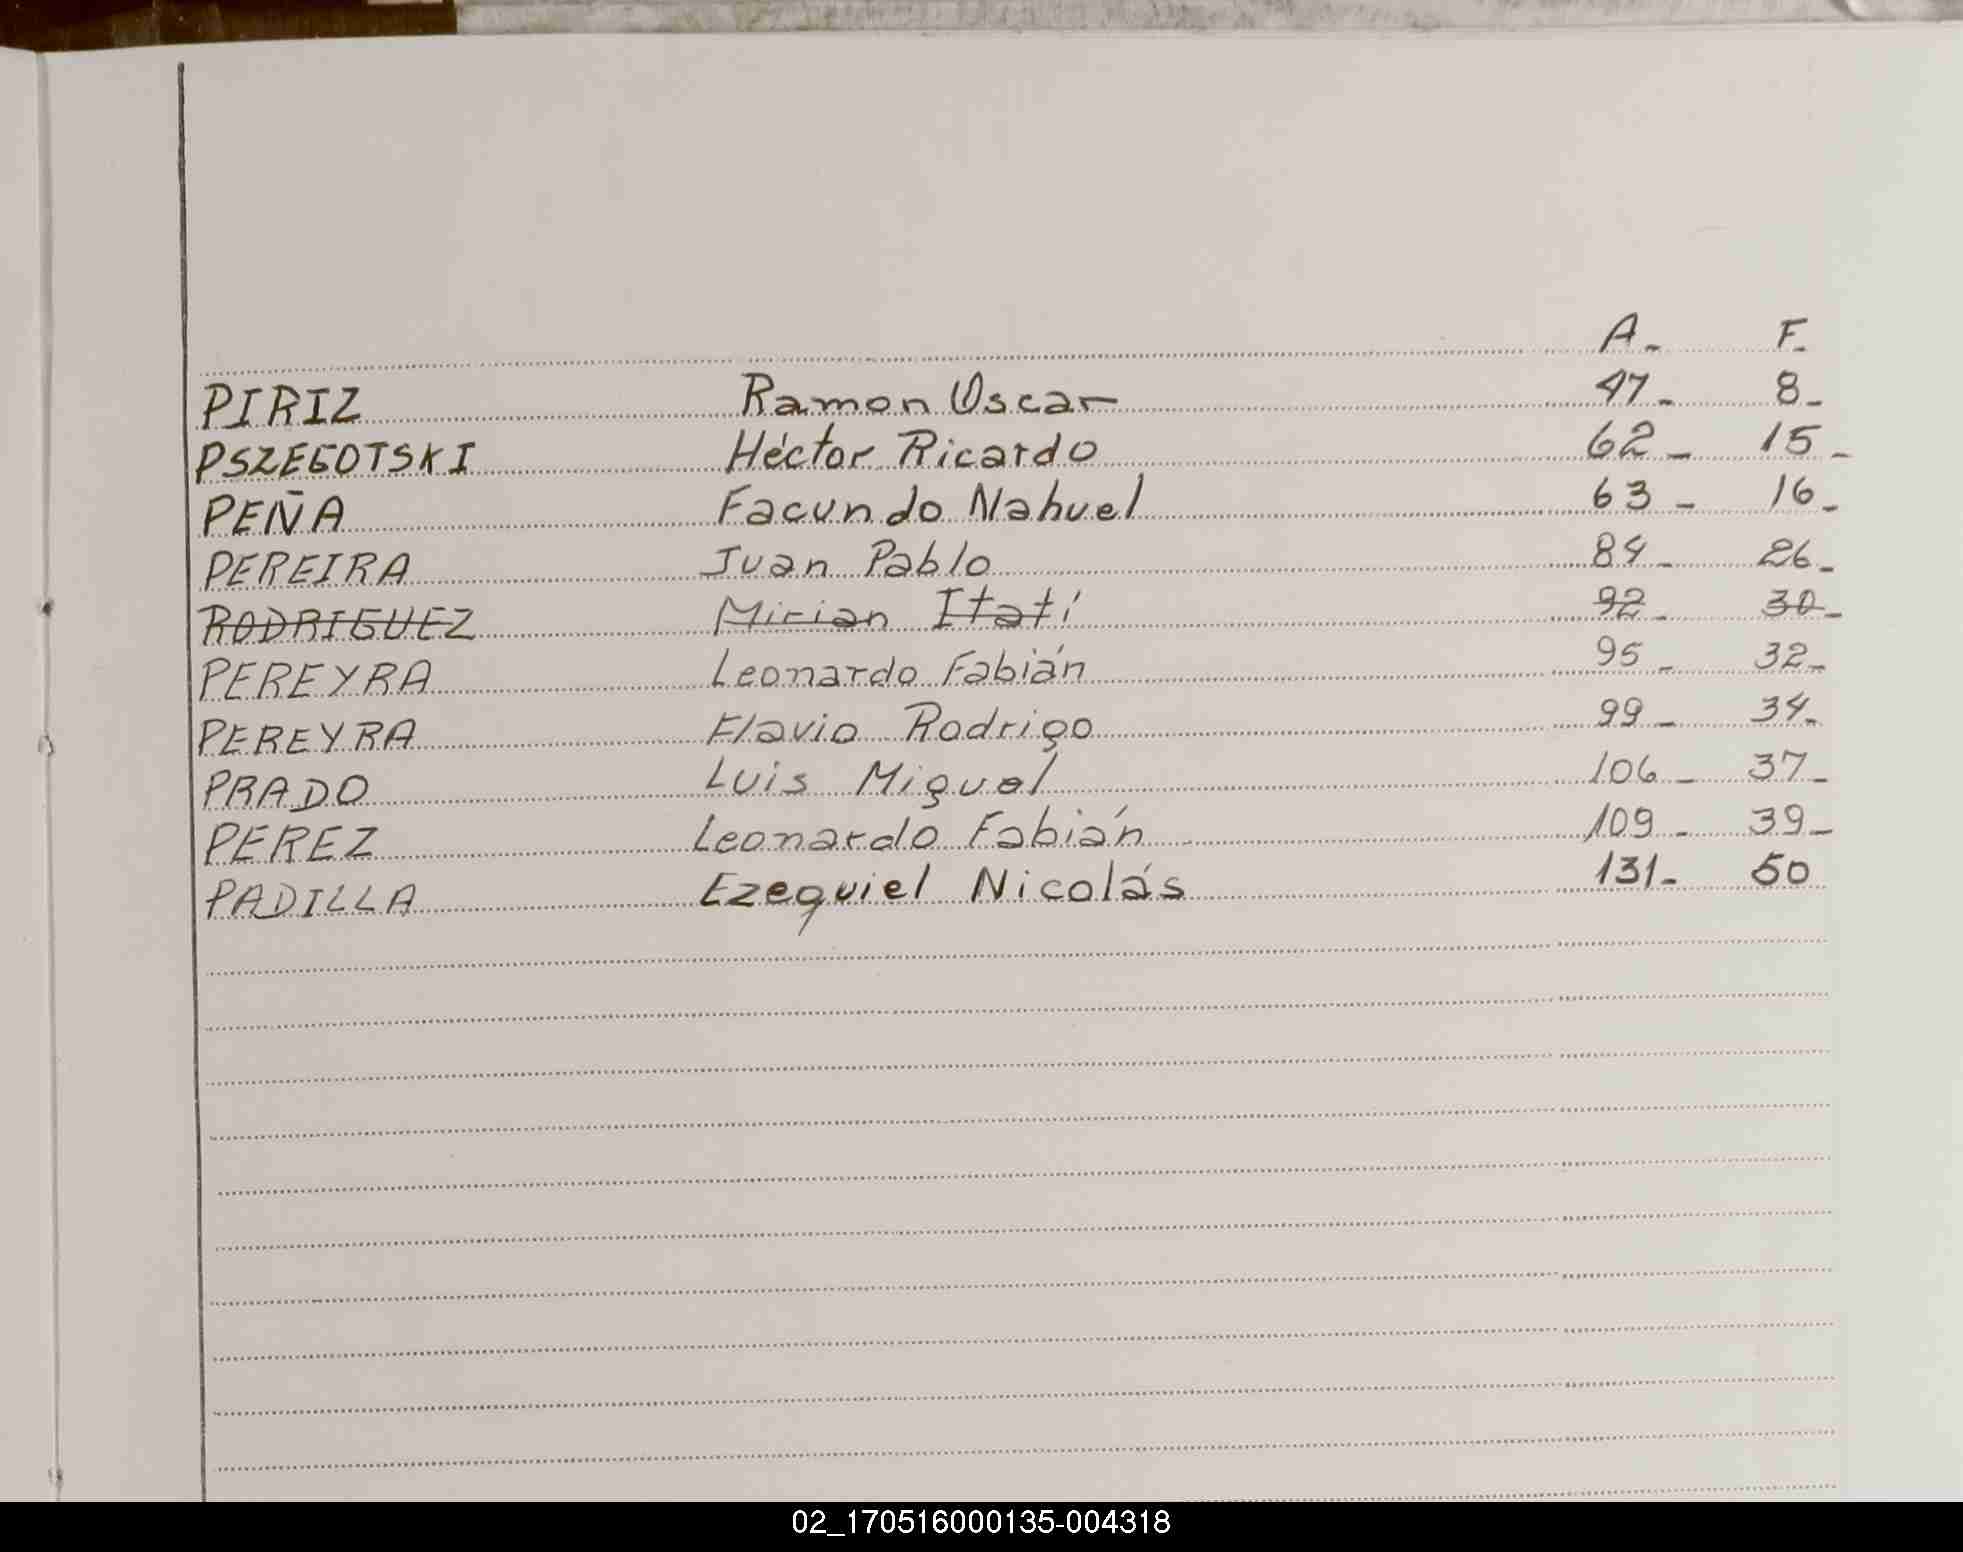 A. F.
PIRIZ Ramon Oscar 47. 8.
PSZEGOTSKI Héctor Ricardo 62. 15.
PEÑA Facundo Nahuel 63. 16.
PEREIRA Juan Pablo 84. 26.
RODRIGUEZ Mirian Itatí 92. 30.
PEREYRA Leonardo Fabián 95. 32.
PEREYRA Flavio Rodrigo 99. 34.
PRADO Luis Miguel 106. 37.
PEREZ Leonardo Fabián 109. 39.
PADILLA Ezequiel Nicolás 131. 50
02_170516000135-004318